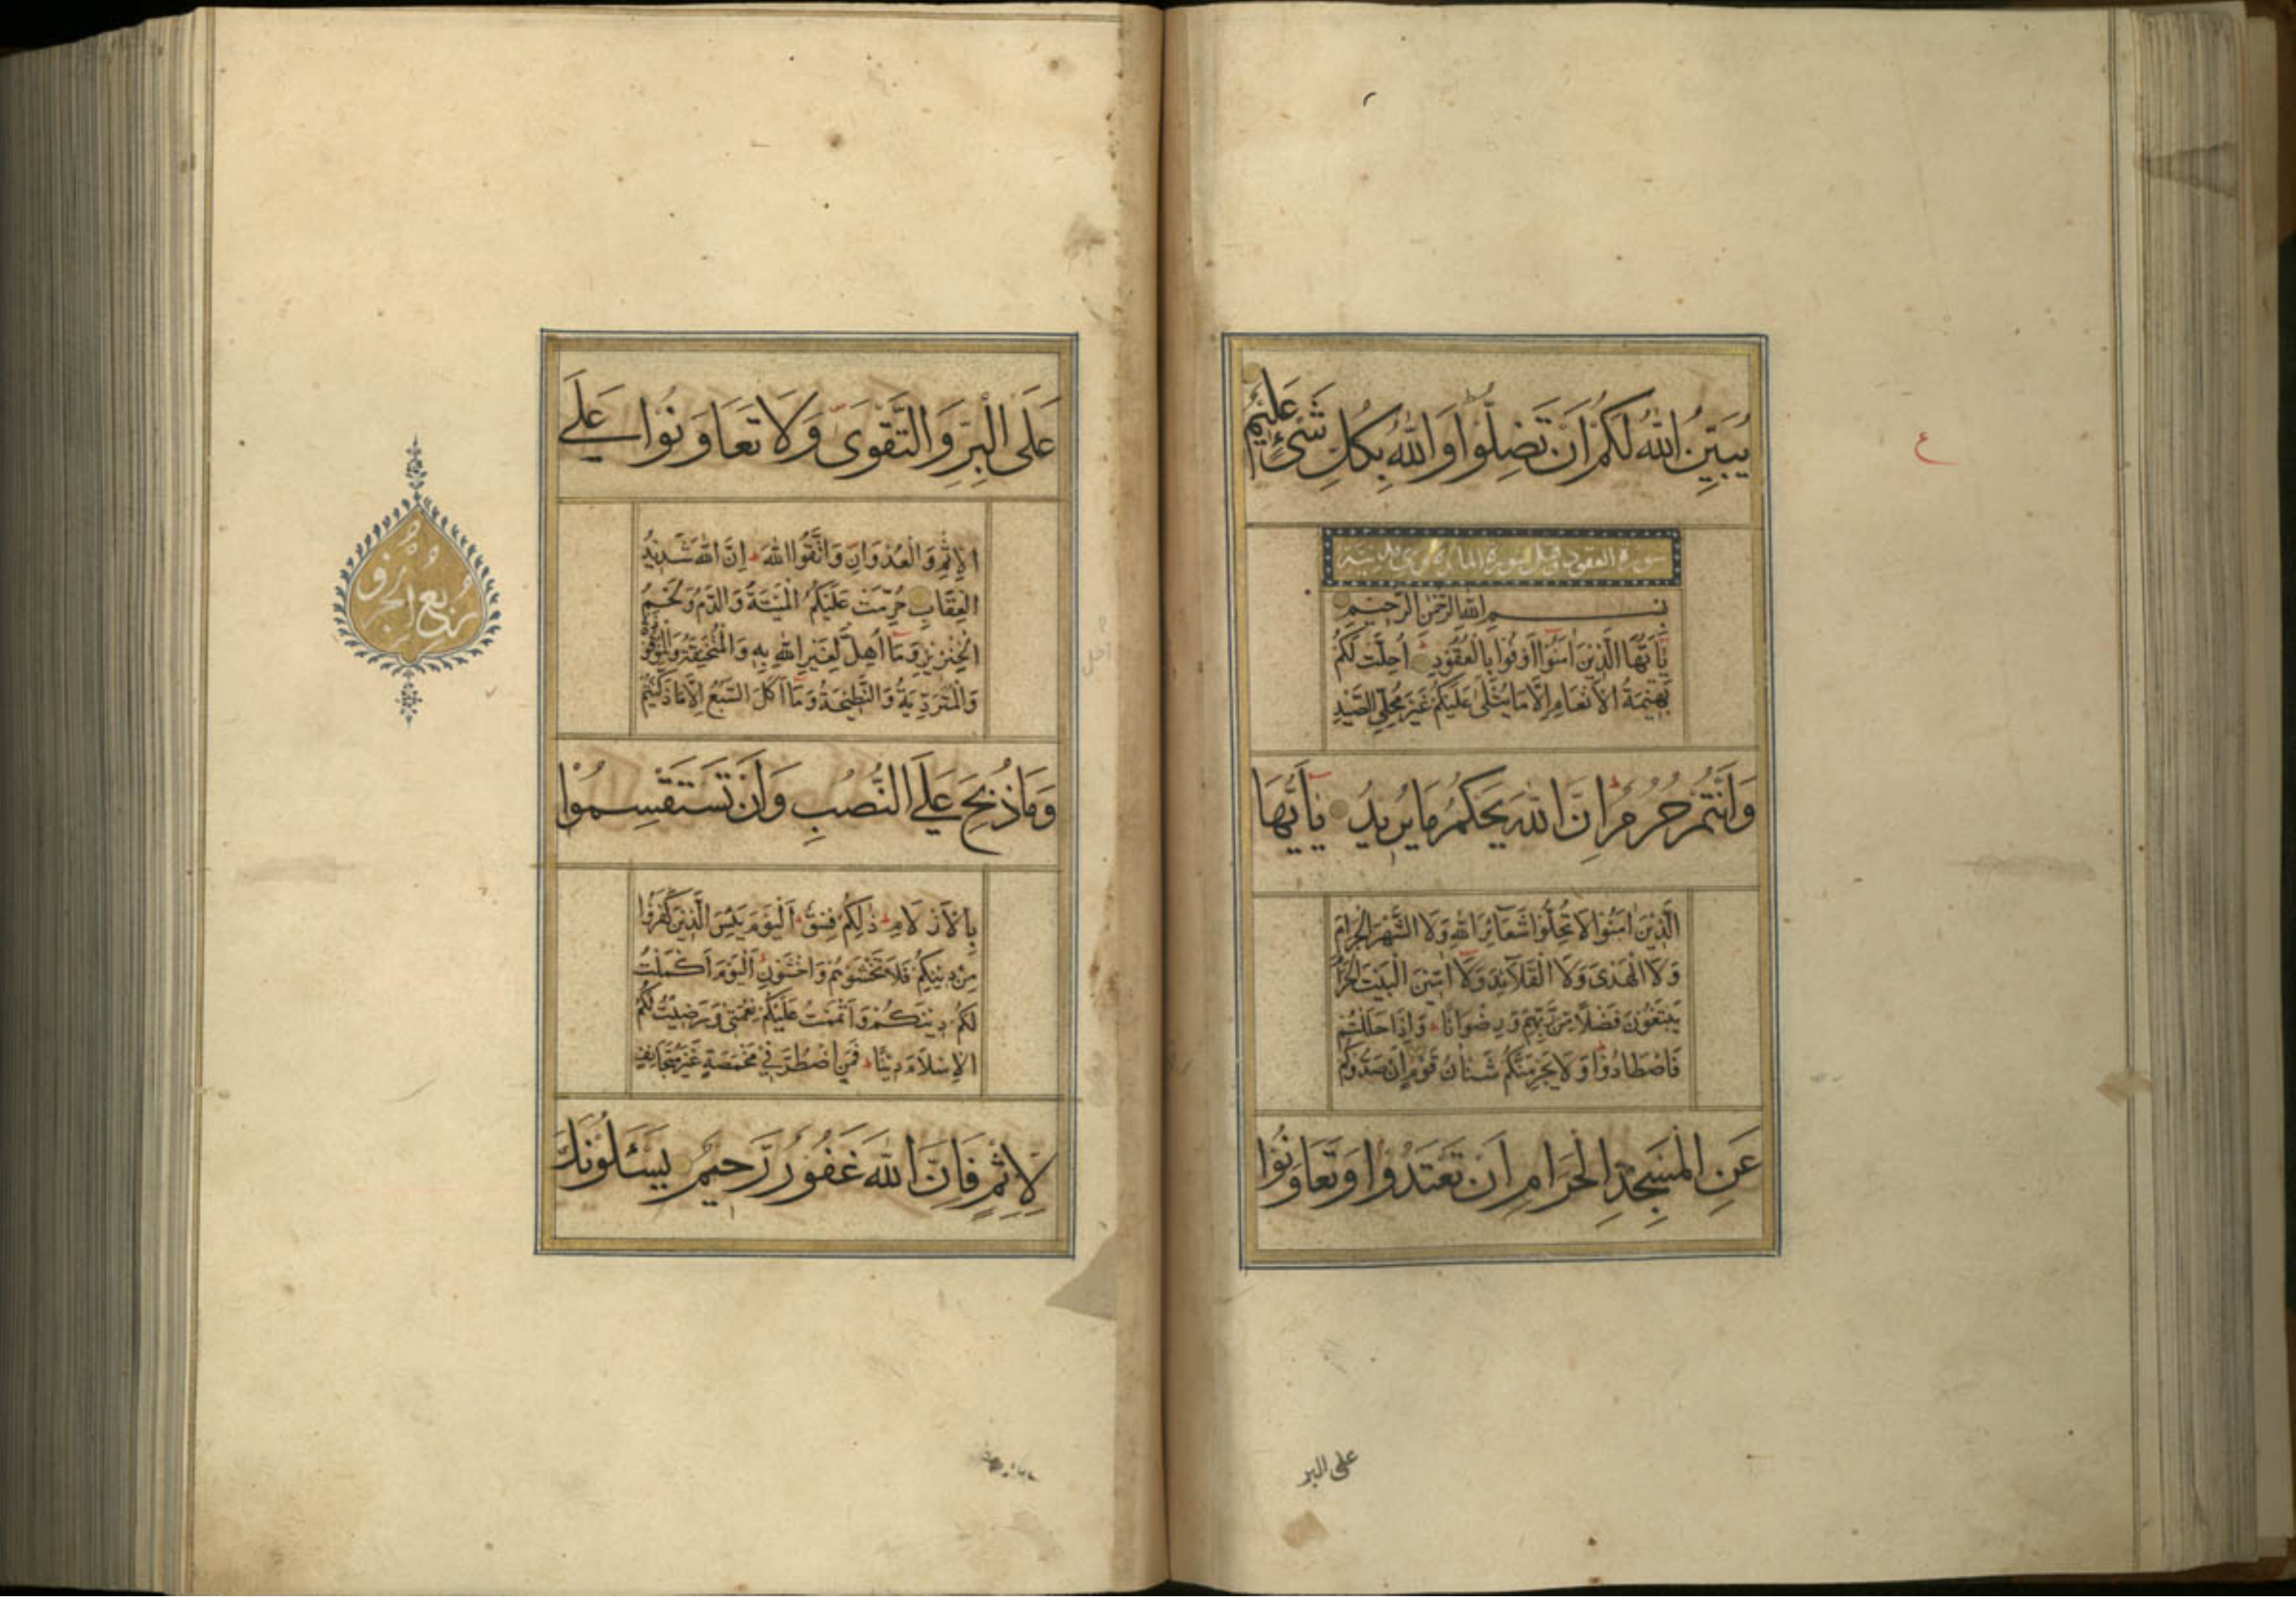 ع
يُبَيِّنُ اللّٰهُ لَكُمْ اَنْ تَضِلُّوا وَاللّٰهُ بِكُلِّ شَیْءٍ عَلِيمٌ
سورة العقود وقيل سورة المائدة وهي مدنية
بِسْمِ اللّٰهِ الرَّحْمٰنِ الرَّحِيمِ
يَٓا اَيُّهَا الَّذِينَ اٰمَنُٓوا اَوْفُوا بِالْعُقُودِ اُحِلَّتْ لَكُمْ
بَهِيمَةُ الْاَنْعَامِ اِلَّا مَا يُتْلٰى عَلَيْكُمْ غَيْرَ مُحِلِّي الصَّيْدِ
وَاَنْتُمْ حُرُمٌ اِنَّ اللّٰهَ يَحْكُمُ مَا يُرِيدُ يَٓا اَيُّهَا
الَّذِينَ اٰمَنُوا لَا تُحِلُّوا شَعَٓائِرَ اللّٰهِ وَلَا الشَّهْرَ الْحَرَامَ
وَلَا الْهَدْیَ وَلَا الْقَلَٓائِدَ وَلَٓا اٰمِّينَ الْبَيْتَ الْحَرَامَ
يَبْتَغُونَ فَضْلًا مِنْ رَبِّهِمْ وَرِضْوَانًا وَاِذَا حَلَلْتُمْ
فَاصْطَادُوا وَلَا يَجْرِمَنَّكُمْ شَنَاٰنُ قَوْمٍ اَنْ صَدُّوكُمْ
عَنِ الْمَسْجِدِ الْحَرَامِ اَنْ تَعْتَدُوا وَتَعَاوَنُوا
على البر
عَلَى الْبِرِّ وَالتَّقْوٰى وَلَا تَعَاوَنُوا عَلَى
الْاِثْمِ وَالْعُدْوَانِ وَاتَّقُوا اللّٰهَ اِنَّ اللّٰهَ شَدِيدُ
الْعِقَابِ حُرِّمَتْ عَلَيْكُمُ الْمَيْتَةُ وَالدَّمُ وَلَحْمُ
الْخِنْزِيرِ وَمَٓا اُهِلَّ لِغَيْرِ اللّٰهِ بِهِ وَالْمُنْخَنِقَةُ وَالْمَوْقُوذَةُ
وَالْمُتَرَدِّيَةُ وَالنَّطِيحَةُ وَمَٓا اَكَلَ السَّبُعُ اِلَّا مَا ذَكَّيْتُمْ
وَمَا ذُبِحَ عَلَى النُّصُبِ وَاَنْ تَسْتَقْسِمُوا
بِالْاَزْلَامِ ذٰلِكُمْ فِسْقٌ اَلْيَوْمَ يَئِسَ الَّذِينَ كَفَرُوا
مِنْ دِينِكُمْ فَلَا تَخْشَوْهُمْ وَاخْشَوْنِ اَلْيَوْمَ اَكْمَلْتُ
لَكُمْ دِينَكُمْ وَاَتْمَمْتُ عَلَيْكُمْ نِعْمَتِي وَرَضِيتُ لَكُمُ
الْاِسْلَامَ دِينًا فَمَنِ اضْطُرَّ فِي مَخْمَصَةٍ غَيْرَ مُتَجَانِفٍ
لِاِثْمٍ فَاِنَّ اللّٰهَ غَفُورٌ رَحِيمٌ يَسْئَلُونَكَ
ربع الحزب